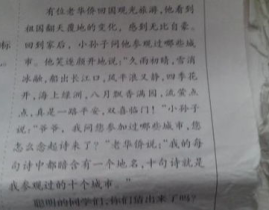 有位老华侨回国观光旅游,他看到
祖国翻天覆地的变化,感到无比自豪。
回到家后,小孙子问他参观过哪些城
市。他笑逐颜开地说:“久雨初晴,雪消
冰融,船出长江口,风平浪又静,四季花
开,海上绿洲,八月飘香满园,流萤点
点,真是一路平安,双喜临门！”小孙子
说:“爷爷,我问您参加过哪些城市,您
怎么念起诗来了？”老华侨说:“我的每
句诗中都暗含有一个地名,十句诗就是
我参观过的十个城市。”
聪明的同学们,你们猜出来了吗？